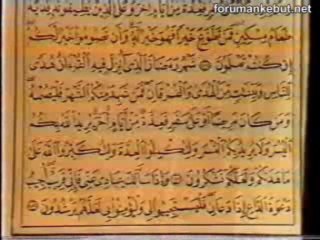 forumankebut.net
فَعِدَّةٌ مِّنْ أَيَّامٍ أُخَرَ وَعَلَى الَّذِينَ يُطِيقُونَهُ فِدْيَةٌ
طَعَامُ مِسْكِينٍ فَمَن تَطَوَّعَ خَيْرًا فَهُوَ خَيْرٌ لَّهُ وَأَن تَصُومُوا خَيْرٌ لَّكُمْ
إِن كُنتُمْ تَعْلَمُونَ شَهْرُ رَمَضَانَ الَّذِي أُنزِلَ فِيهِ الْقُرْآنُ هُدًى
لِّلنَّاسِ وَبَيِّنَاتٍ مِّنَ الْهُدَىٰ وَالْفُرْقَانِ فَمَن شَهِدَ مِنكُمُ الشَّهْرَ فَلْيَصُمْهُ
وَمَن كَانَ مَرِيضًا أَوْ عَلَىٰ سَفَرٍ فَعِدَّةٌ مِّنْ أَيَّامٍ أُخَرَ يُرِيدُ اللَّهُ بِكُمُ
الْيُسْرَ وَلَا يُرِيدُ بِكُمُ الْعُسْرَ وَلِتُكْمِلُوا الْعِدَّةَ وَلِتُكَبِّرُوا اللَّهَ عَلَىٰ
مَا هَدَاكُمْ وَلَعَلَّكُمْ تَشْكُرُونَ وَإِذَا سَأَلَكَ عِبَادِي عَنِّي فَإِنِّي قَرِيبٌ أُجِيبُ
دَعْوَةَ الدَّاعِ إِذَا دَعَانِ فَلْيَسْتَجِيبُوا لِي وَلْيُؤْمِنُوا بِي لَعَلَّهُمْ يَرْشُدُونَ